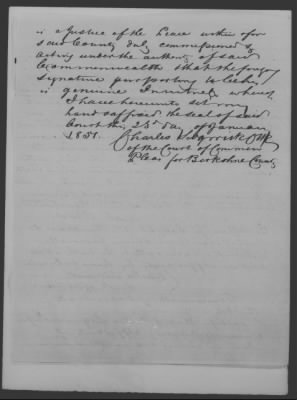 is a Justice of the Peace within & for
said County duly commissioned &
acting under the authority of said
Commonwealth that the foregoing
signature purporting to be his
is genuine In witness whereof
I have hereunto set my
hand & affixed the seal of said
Court this 23d day of January
1851. Charles Clk
of the Court of Common
Pleas for Berkshire County